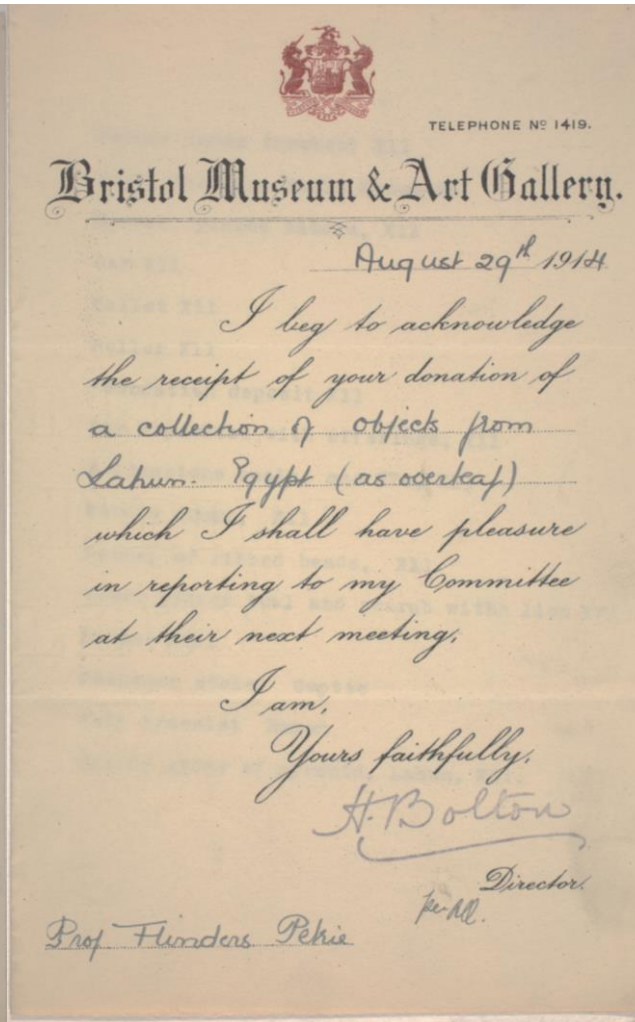 TELEPHONE Nº 1419.
Bristol Museum & Art Gallery.
August 29th 1914
I beg to acknowledge
the receipt of your donation of
a collection of objects from
Lahun. Egypt (as overleaf)
which I shall have pleasure
in reporting to my Committee
at their next meeting.
I am,
Yours faithfully,
H. Bolton
Director.
per
Prof Flinders Petrie